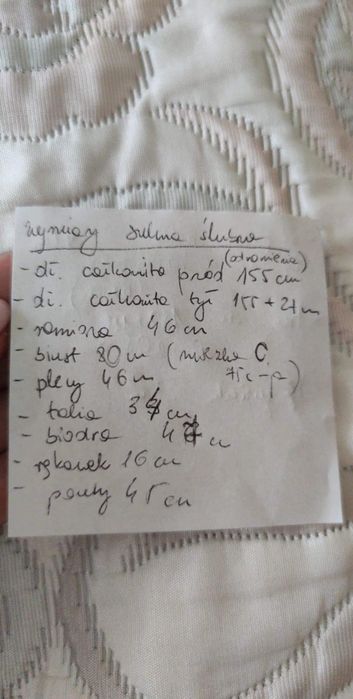 wymiary suknia ślubna
(od ramienia)
- dł. całkowita przód 155 cm
- dł. całkowita tył 155 + 21 cm
- ramiona 46 cm
- biust 80 cm (miseczka C
- plecy 46 cm
- talia 34 cm
- biodra 47 cm
- rękawek 16 cm
- pachy 45 cm